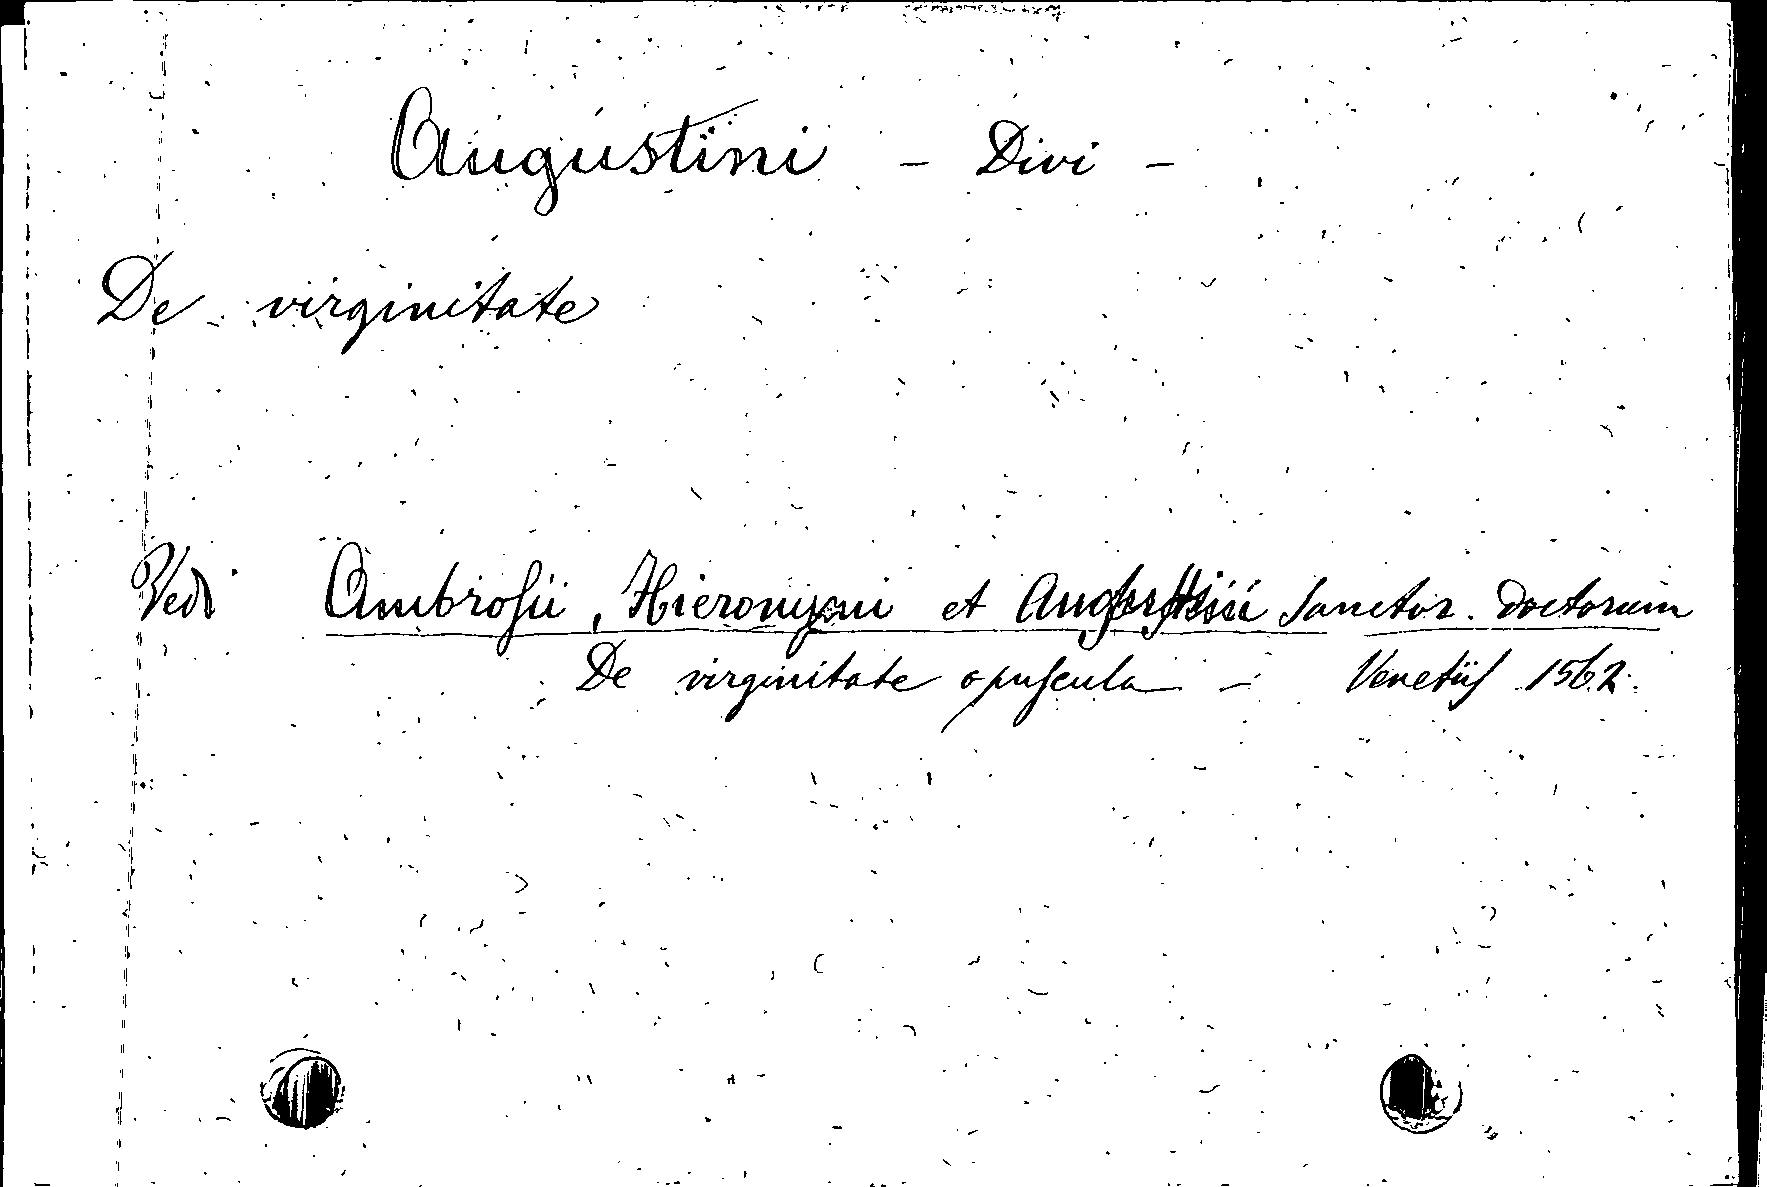 Augustini - Divi -
De virginitate
Vedi Ambrosii, Hieronymi et Augustini Sanctor. doctorum
De virginitate opuscula - Venetiis 1562.